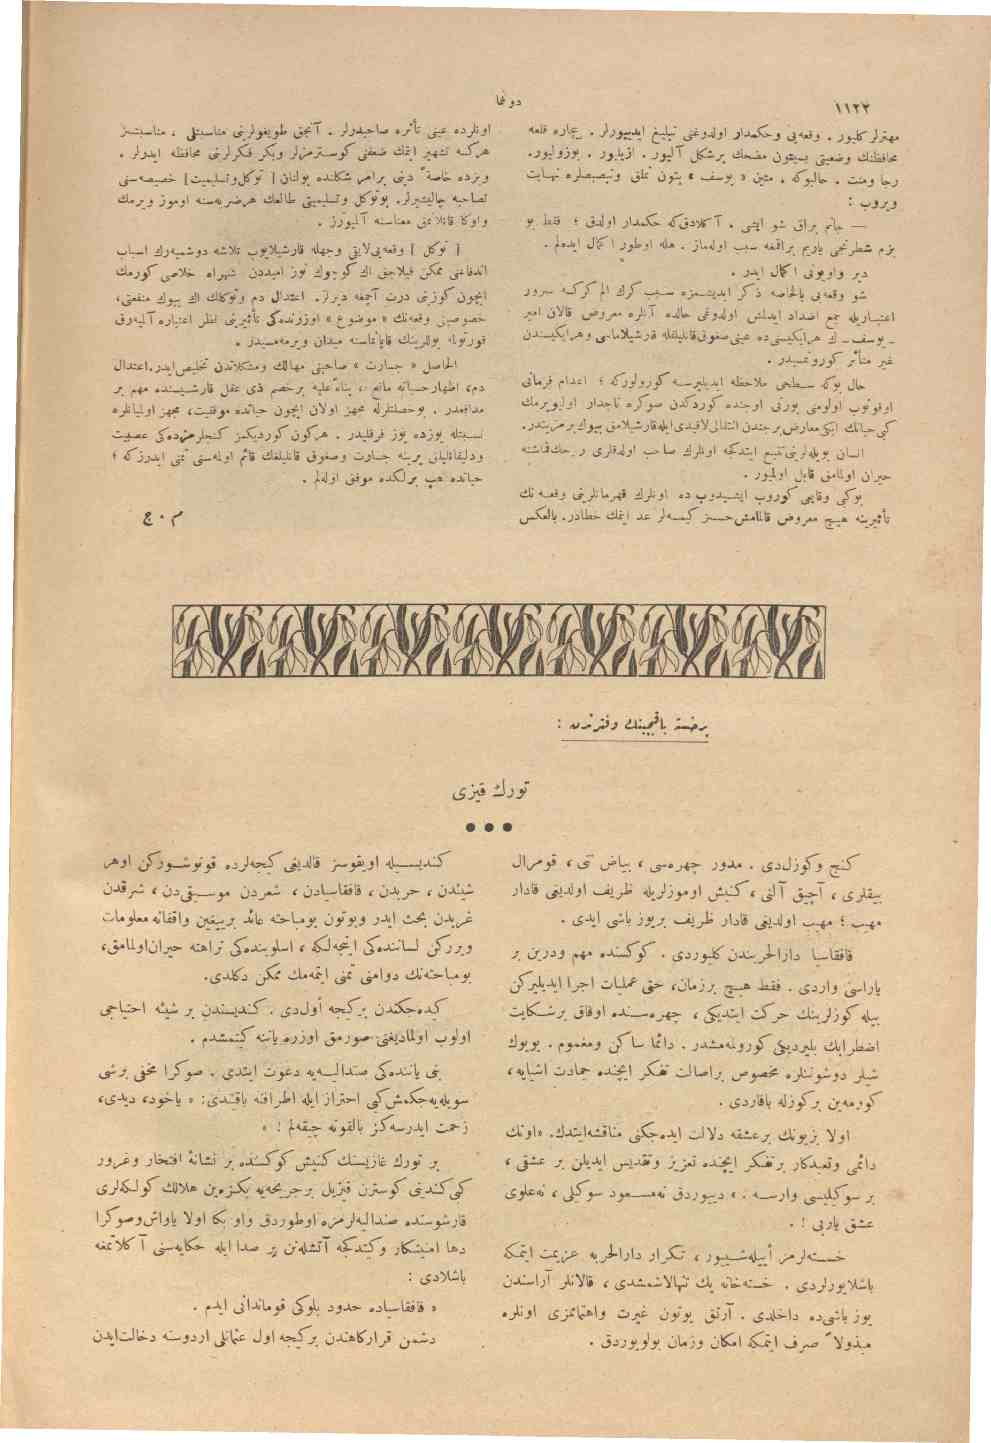 دوغما
١١٢٢
مهترلر كلیور . وقعه‌یی وحكمدار اولدوغنی تبلیغ ایدییورلر . بیچاره قلعه
محافظنك وضعیتی بسبتون مضحك برشكل آلیور . ازیلیور . بوزولیور.
رجا ومنت . حالبوكه . متین « یوسف » بتون تملق وتبصبصلره نهایت
ویروب :
— جانم براق شو ایشی . آكلادق‌كه حكمدار اولدق ؛ فقط بو
بزم شطرنجی یاریم براقمغه سبب اوله‌ماز . هله اوطور اكمال ایده‌لم .
دیر واویونی اكمال ایدر .
شو وقعه‌یی بالخاصه ذكر ایدیشمزه سبب كرك الم كركسه سرور
اعتباریله جمع اضداد ایدلمش اولدوغی حالده آنلره معروض قالان امیر
ـ یوسف ـ ك هرایكیسی‌ده عینی صغوق‌قانلیلقله قارشیلاماسی وهرایكیسندن
غیر متأثر كورونمسیدر .
حال بوكه سطحی ملاحظه ایدیلیرسه كورولوركه ؛ اعدام فرمانی
اوقونوب اولومی بورنی اوجنده كوردكدن صوكره تاجدار اولیویرمك
كبی حیاتك ایكی معارض برجندن انتقالی لاقیدی ایله‌قارشیلامق بیوك برمزیتدر.
انسان بویله‌لرینی تتبع ایتدكجه اونلرك صاحب اولدقلری روحك‌متانتنه
حیران اولمامق قابل اولمیور .
بوكبی وقایعی كوروب ایشیدوب ده اونلرك قهرمانلرینی وقعه نك
تأثیرینه هیچ معروض قالمامش‌حسسز كیمسه‌لر عد ایتمك خطادر. بالعكس
اونلرده عینی تأثره صاحبدرلر . آنجق طویغولرینی مناسبتلی ، مناسبتسز
هركسه تشهیر ایتمك ضعفنی كوسترمزلر وبكر فكرلرینی محافظه ایدرلر .
وبزده خاصةً دینی براهر شكلنده بولنان [ توكل‌وتسلیمیت ] خصیصه‌سنی
تصاحبه چالیشیرلر. بوتوكل وتسلیمیتی طالعك هرضربه‌سنه اوموز ویرمك
واوكا قاتلانمق معناسنه آلمیورز .
[ توكل ] وقعه‌یی‌لایق وجهله قارشیلایوب تلاشه دوشمیه‌رك اسباب
اندفاعنی ممكن قیلاجق اك كوچوك نور امیددن شهراه خلاصی كورمك
ایچون كوزینی درت آچمغه دیرلر. اعتدال دم وتوكلك اك بیوك منفعتی،
خصوصیتی وقعه‌نك « موضوع » اوزرنده‌كی تأثیرینی نظر اعتباره آلیه‌رق
قورتولمه یوللرینك قاپانماسنه میدان ویرمه‌مسیدر .
الحاصل « جسارت » صاحبنی مهالك ومشكلاتدن تخلیص‌ایدر.اعتدال
دم، اظهارحسیاته مانع ، بناءً‌علیه برخصم ذی عقل قارشیسنده مهم بر
مدافعدر . بوخصلتلرله مجهز اولان ایچون حیاتده موفقیت، مجهز اولمیانلره
نسبتله یوزده یوز فرقلیدر . هركون كوردیكمز كنجلرمزده‌كی عصبیت
ودلیقانلیلنی یرینه جسارت وصغوق قانلیلغك قائم اولمه‌سنی تمنی ایدرزكه ؛
حیاتده هپ برلكده موفق اوله‌لم .
م . ج
برخسته باقیجینك دفترندن :
تورك قیزی
كنج وكوزل‌دی . مدور چهره‌سی ، بیاض تنی ، قومرال
بیقلری ، آچیق آلنی ، كنیش اوموزلریله ظریف اولدیغی قادار
مهیب ؛ مهیب اولدیغی قادار ظریف بریوز باشی ایدی .
قافقاسیا دارالحربندن كلیوردی . كوكسنده مهم ودرین بر
یاراسی واردی . فقط هیچ برزمان، حتی عملیات اجرا ایدیلیركن
بیله كوزلرینك حركت ایتدیكی ، چهره‌سنده اوفاق برشكایت
اضطرابك بلیردیكی كورولمه‌مشدر . دائما ساكن ومغموم . بویوك
شیلر دوشونلره مخصوص براصالت تفكر ایچنده جمادت اشیایه ،
كورمه‌ین بركوزله باقاردی .
اولا بزبونك برعشقه دلالت ایده‌جكنی مناقشه‌ایتدك. «اونك
دائمی وتعبدكار برتفكر ایچنده تعزیز وتقدیس ایدیلن بر عشقی ،
بر سوكیلیسی وارسه . » دییوردق نه‌مسعود سوكیلی ، نه‌علوی
عشق یاربی ! .
خسته‌لرمز أییله‌شییور ، تكرار دارالحربه عزیمت ایتمكه
باشلایورلردی . خسته‌خانه پك تنهالاشمشدی ، قالانلر آراسندن
یوز باشی‌ده داخلدی . آرتق بوتون غیرت واهتمامزی اونلره
مبذولاً صرف ایتمكه امكان وزمان بولویوردق .
كندیسیله اویقوسز قالدیغی كیجه‌لرده قونوشوركن اوهر
شیئدن ، حربدن ، قافقاسیادن ، شعردن موسیقی‌دن ، شرقدن
غربدن بحث ایدر وبوتون بومباحثه عائد بریبغین واقفانه معلومات
ویرركن لساننده‌كی اینجه‌لكه ، اسلوبنده‌كی نزاهته حیران‌اولمامق،
بومباحثه‌نك دوامنی تمنی ایتمه‌مك ممكن دكلدی.
كیده‌جكندن بركیجه أول‌دی . كندیسندن بر شیئه احتیاجی
اولوب اولمادیغنی صورمق اوزره یاننه كیتمشدم .
بنی یاننده‌كی صندالیه‌یه دعوت ایتدی . صوكرا مخفی برشی
سویله‌یه‌جكمش‌كبی احتراز ایله اطرافنه باقندی: « یاخود، دیدی،
زحمت ایدرسه‌كز بالقونه چیقه‌لم ! »
بر تورك غازیسنك كنیش كوكسنده بر نشانهٔ افتخار وغرور
كبی‌كندینی كوسترن قیزیل برجریحه‌یه بكزه‌ین هلالك كولكه‌لری
قارشوسنده صندالیه‌لرمزه اوطوردق واو بكا اولا یاواش‌وصوكرا
دها امنیتكار وكیتدكجه آتشلنن بر صدا ایله حكایه‌سنی آكلاتمغه
باشلادی :
« قافقاسیاده حدود بلوكی قوماندانی ایدم .
دشمن قرارگاهندن بركیجه اول عثمانلی اردوسنه دخالت‌ایدن